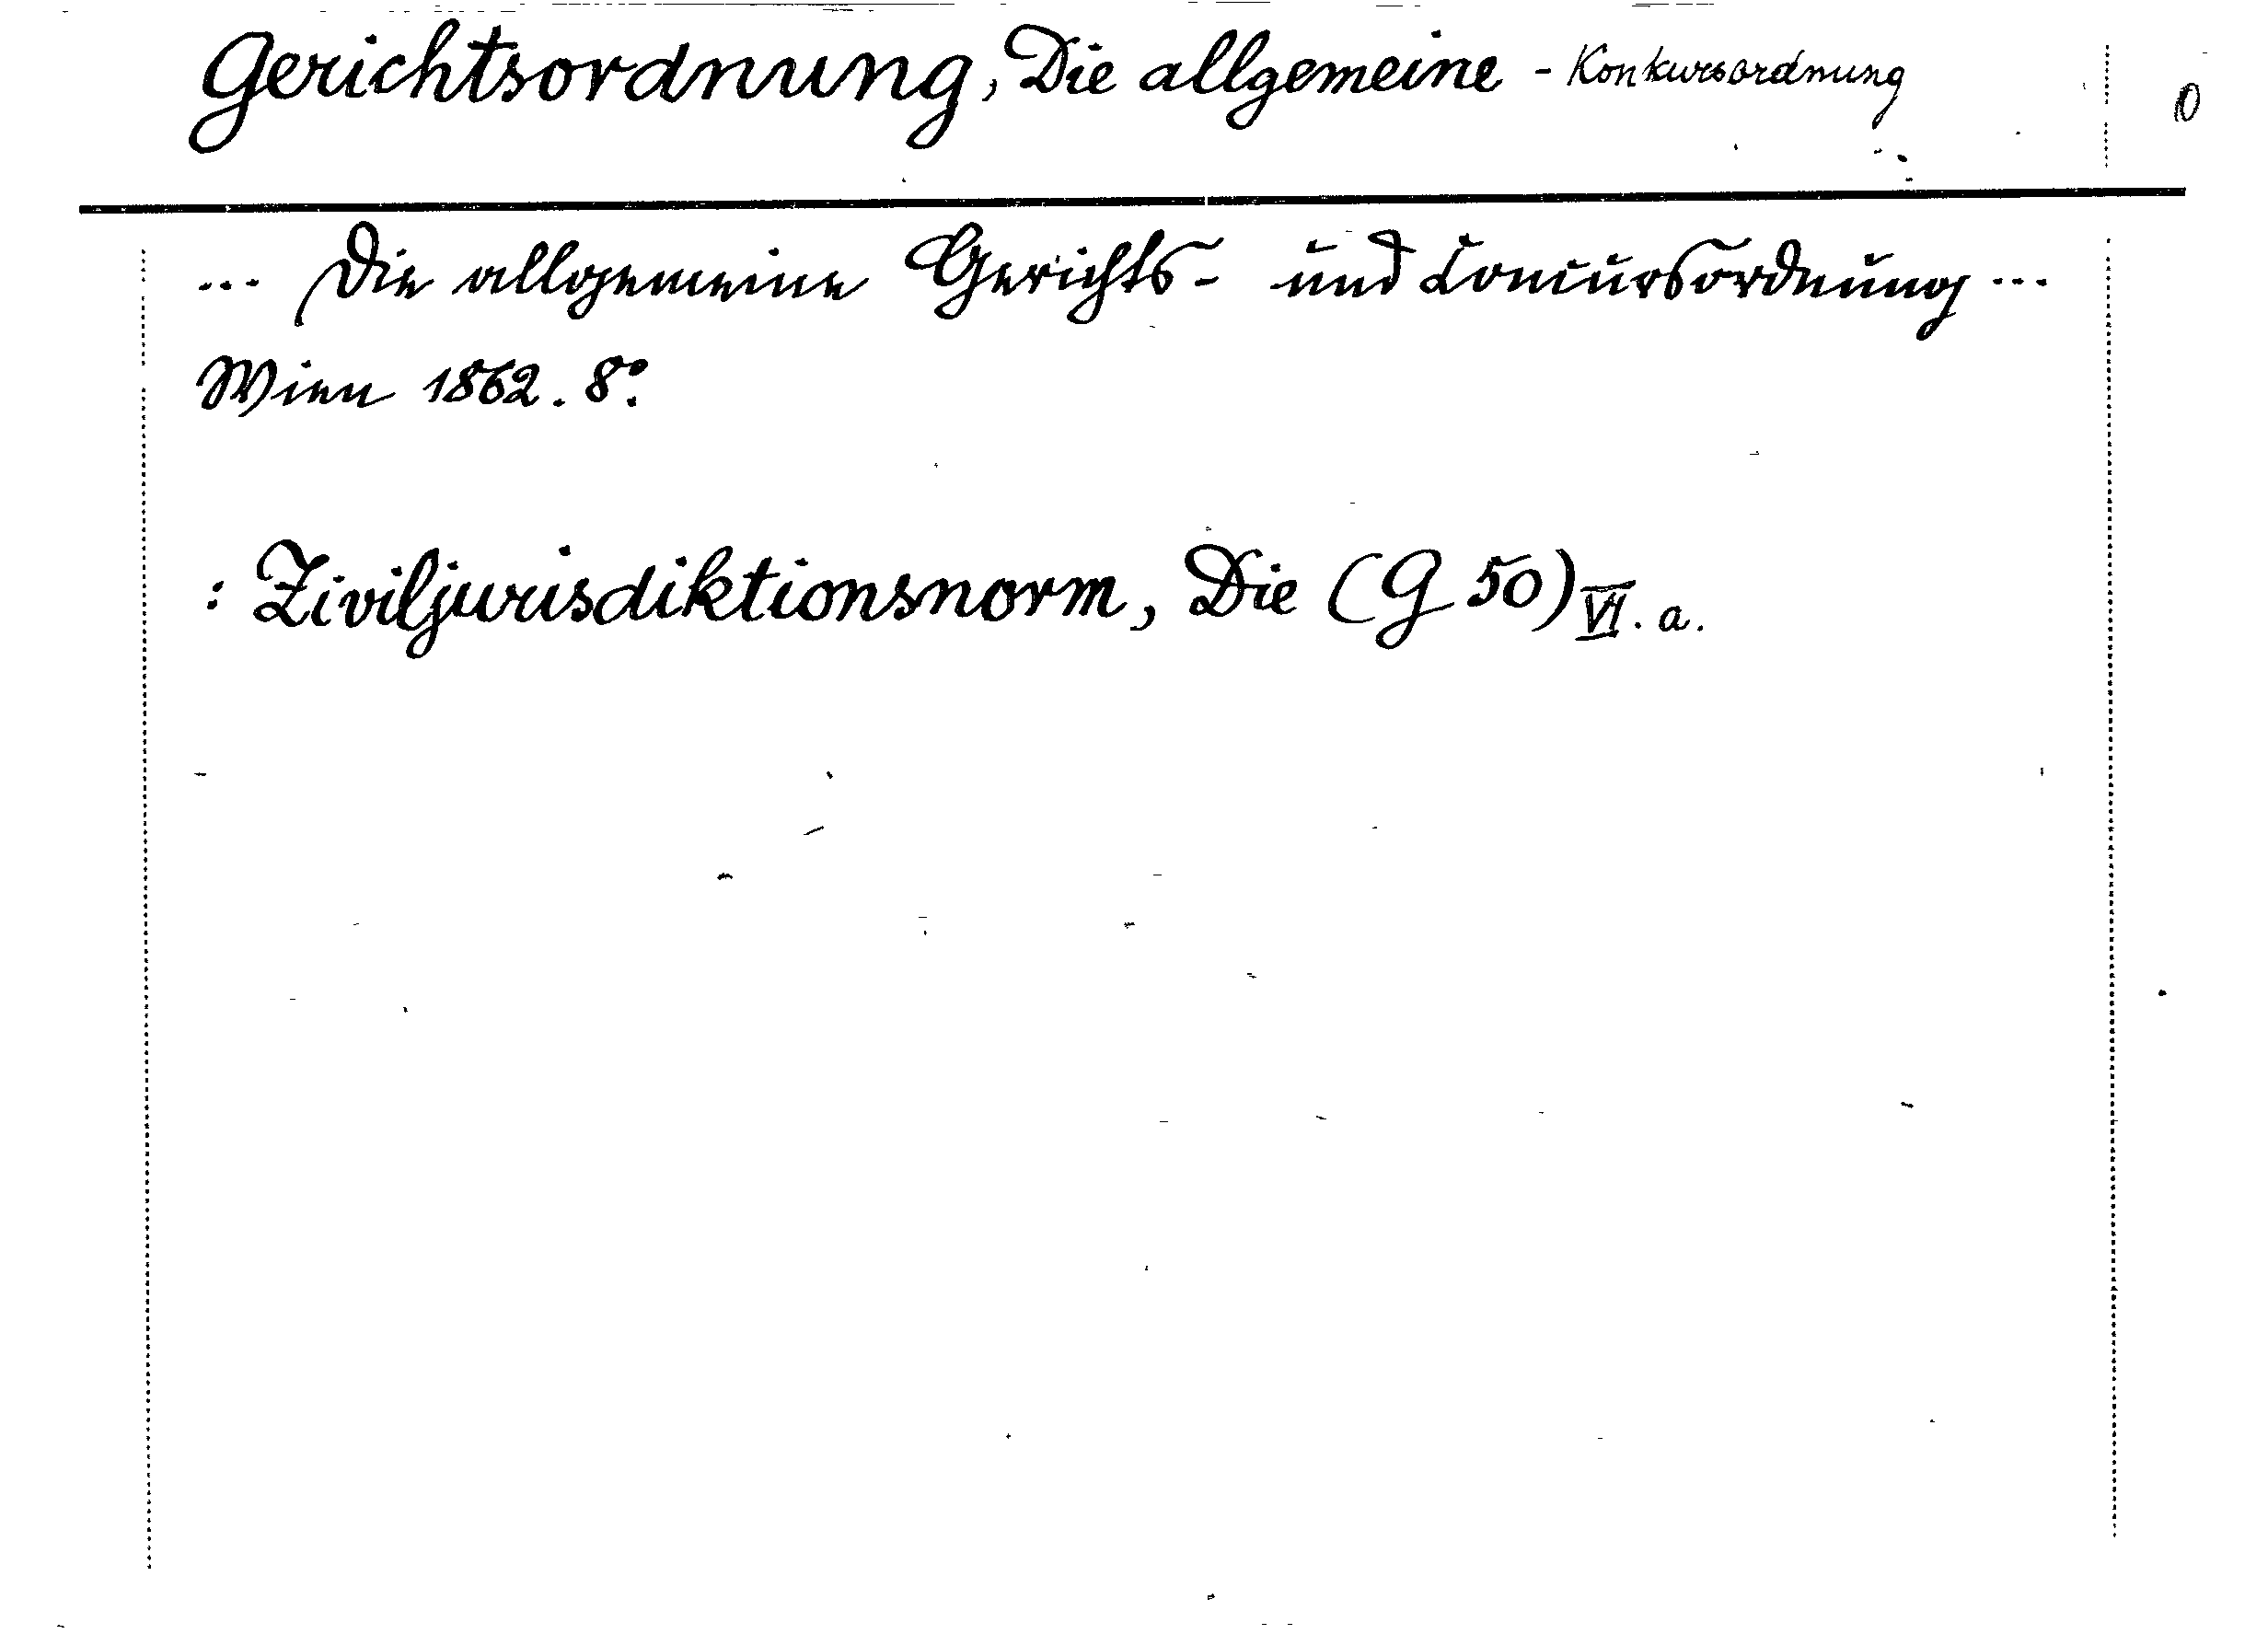 Gerichtsordnung, Die allgemeine - Konkursordnung 0
... Die allgemeine Gerichts- und Concursordnung ...
Wien 1862. 8°.
: Ziviljurisdiktionsnorm, Die (G 50) VI. a.